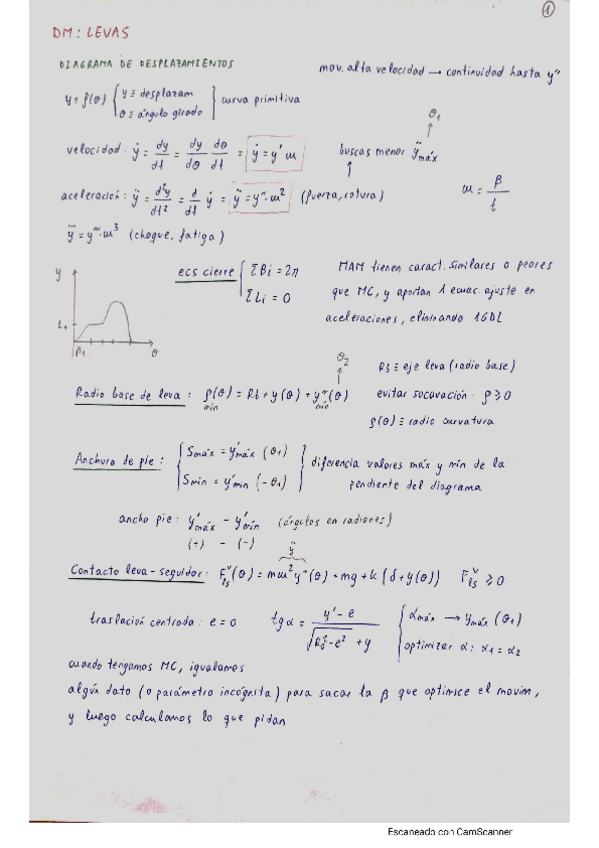 1
DM: LEVAS
DIAGRAMA DE DESPLAZAMIENTOS
mov. alta velocidad → continuidad hasta y''
y = f(θ) { y ≡ desplazam
θ ≡ ángulo girado } curva primitiva
velocidad: ẏ = dy/dt = dy/dθ dθ/dt = ẏ = y' ω
buscas menor ÿmáx
θ1
aceleración: ÿ = d²y/dt² = d/dt ẏ = ÿ = y''·ω² (fuerza, rotura)
ω = β/t
y⃛ = y'''·ω³ (choque, fatiga)
y
L1
β1
θ
ecs cierre { Σβi = 2π
ΣLi = 0
MAM tienen caract. similares o peores
que MC, y aportan 1 ecuac. ajuste en
aceleraciones, eliminando 1GDL
θ2
Radio base de leva: ρ(θ) = Rb + y(θ) + y''(θ)
min min
Rb ≡ eje leva (radio base)
evitar socavación: ρ ≥ 0
ρ(θ) ≡ radio curvatura
Anchura de pie: { Smáx = y'máx (θ1)
Smín = y'mín (-θ1) } diferencia valores máx y mín de la
pendiente del diagrama
ancho pie: y'máx - y'mín (ángulos en radianes)
(+) - (-)
ÿ
Contacto leva-seguidor: Fls^v(θ) = mω²y''(θ) + mg + k(δ + y(θ)) Fls^v ≥ 0
traslación centrada: e = 0
tgα = y' - e / √(R0² - e²) + y
{ αmáx → ymáx (θ1)
optimizar α: α1 = α2
cuando tengamos MC, igualamos
algún dato (o parámetro incógnita) para sacar la β que optimice el movim,
y luego calculamos lo que pidan
Escaneado con CamScanner